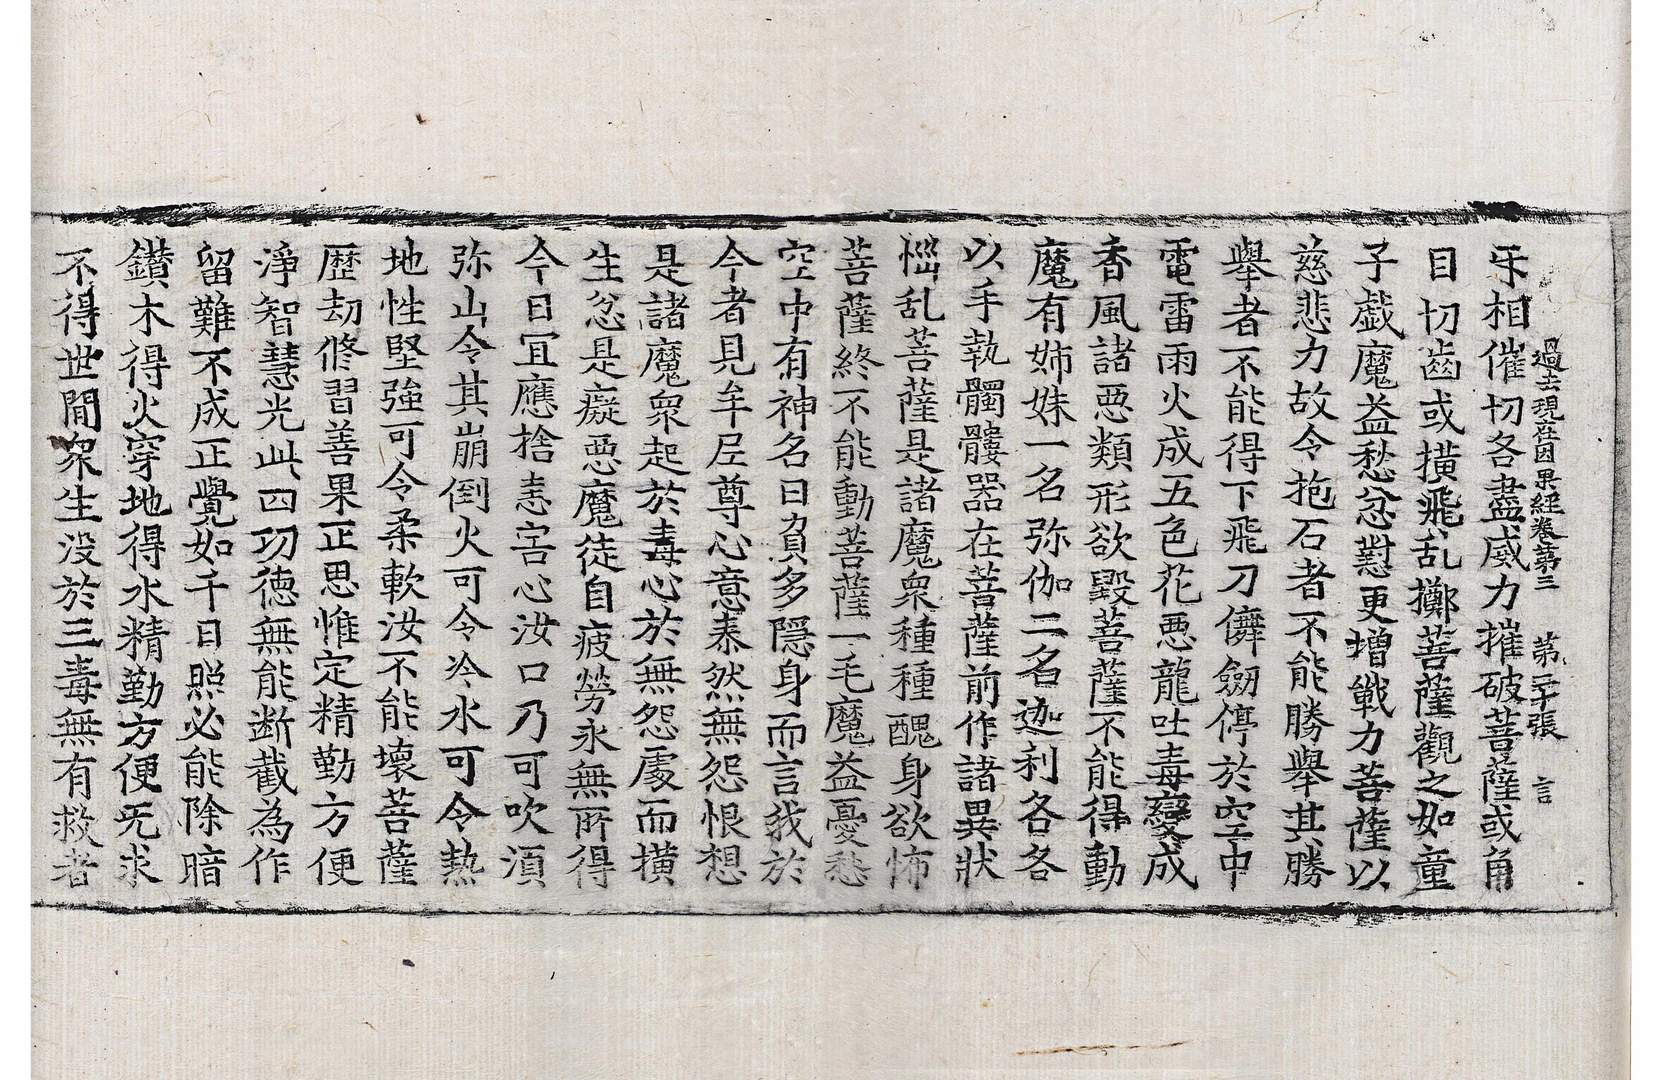 過去現在因果經卷第三　第二十張　言
乐相催切各盡威力摧破菩薩或角
目切齒或撗飛乱擲菩薩觀之如童
子戯魔益愁忿懟更增戰力菩薩以
慈悲力故令抱石者不能勝舉其勝
舉者不能得下飛刀儛劒停於空中
電雷雨火成五色花惡龍吐毒變成
香風諸惡類形欲毀菩薩不能得動
魔有姊妹一名弥伽二名迦利各各
以手執髑髏器在菩薩前作諸異狀
惱乱菩薩是諸魔衆種種醜身欲怖
菩薩終不能動菩薩一毛魔益憂愁
空中有神名曰負多隱身而言我於
今者見牟尼尊心意泰然無怨恨想
是諸魔衆起於毒心於無怨處而撗
生忿是癡惡魔徒自疲勞永無所得
今日冝應捨恚害心汝口乃可吹湏
弥山令其崩倒火可令冷水可令熱
地性堅強可令柔軟汝不能壞菩薩
歴劫修習善果正思惟定精勤方便
淨智慧光此四功德無能断截為作
留難不成正覺如千日照必能除暗
鑚木得火穿地得水精勤方便无求
不得世閒衆生没於三毒無有救者